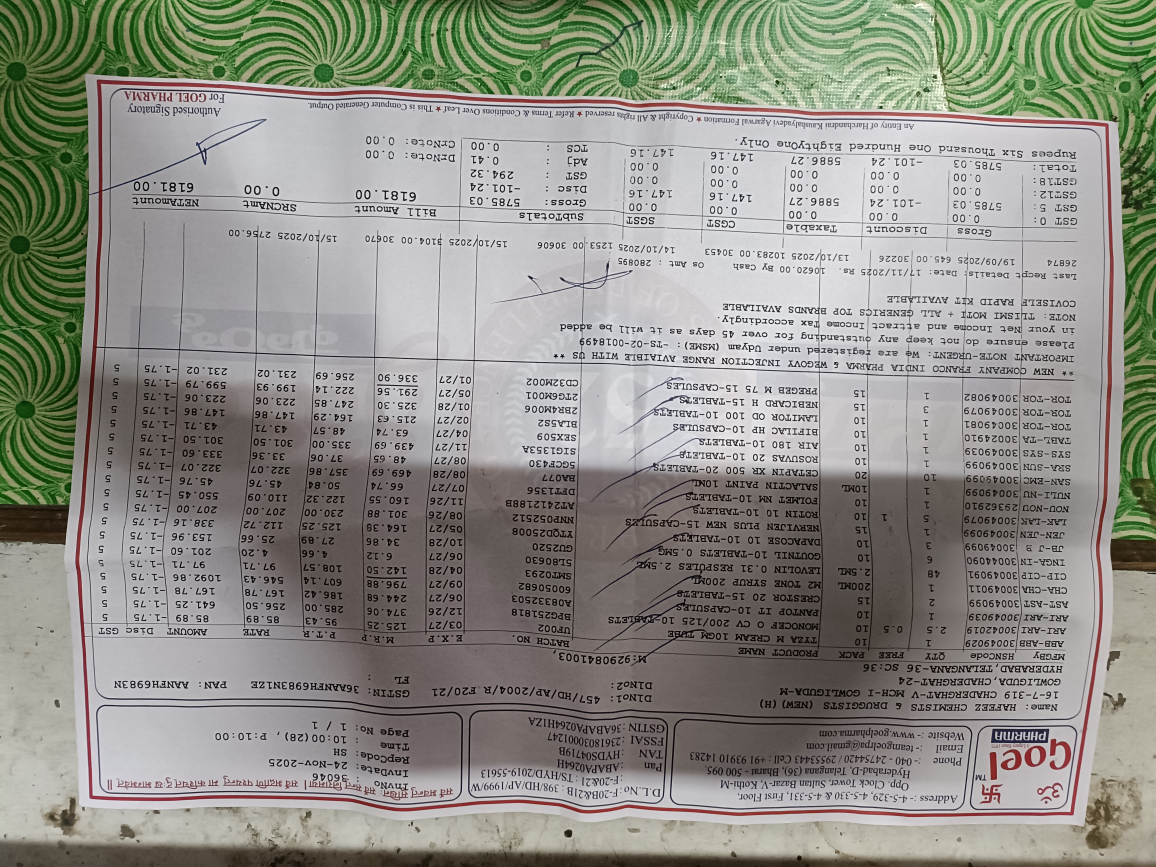 Goel
PHARMA
A Legacy Since 1972
TM
Address :- 4-5-329, 4-5-330 & 4-5-331, First Floor,
Opp. Clock Tower Sultan Bazar-V, Kothi-M
Hyderabad-D, Telangana (36), Bharat - 500 095.
Phone :- 040 - 24754420 / 29553443 Cell : +91 93910 14283
Email :- teamgoelpa@gmail.com
Website :- www.goelpharma.com
D.L.No : F-20B&21B : 398/HD/AP/1999/W
: F-20&21 : TS/HYD/2019-55613
Pan : ABAPA0264H
TAN : HYDS04719B
FSSAI : 23618033001247
GSTIN : 36ABAPA0264H1ZA
सर्वे भवन्तु सुखिनः सर्वे सन्तु निरामयाः । सर्वे भद्राणि पश्यन्तु मा कश्चित् दुःख भाग्भवेत ॥
InvNo : 36046
InvDate : 24-Nov-2025
RepCode: SH
Time : 10:00(28), P:10:00
Page No: 1 / 1
Name: HAFEEZ CHEMISTS & DRUGGISTS (NEW) (H)
16-7-319 CHADERGHAT-V MCH-I GOWLIGUDA-M
GOWLIGUDA, CHADERGHAT-24
HYDERABAD, TELANGANA-36 SC:36
M:9290841003,
DlNo1: 457/HD/AP/2004/R.F20/21
DlNo2:
FL :
GSTIN: 36AANFH6983N1ZE PAN: AANFH6983N
MFGBY HSNCode QTY FREE PACK PRODUCT NAME BATCH NO. E.X.P M.R.P P.T.R RATE AMOUNT Disc GST
ABB-ABB 30049029 1 10 TYZA M CREAM 10GM TUBE UF002 03/27 125.25 95.43 85.89 85.89 -1.75 5
ART-ART 30042019 2.5 0.5 10 MONOCEF O CV 200/125 10-TABLETS BPG251818 12/26 374.06 285.00 256.50 641.25 -1.75 5
ART-ART 30049039 1 10 PANTOP IT 10-CAPSULES A0332803 06/27 244.68 186.42 167.78 167.78 -1.75 5
AST-AST 30049099 2 15 CRESTOR 20 15-TABLETS 60050682 09/27 796.88 607.14 546.43 1092.86 -1.75 5
CHA-CHA 30049011 1 200ML M2 TONE SYRUP 200ML SMT0293 04/28 142.50 108.57 97.71 97.71 -1.75 5
CIP-CIP 30049091 48 2.5ML LEVOLIN 0.31 RESPULES 2.5ML 5180630 06/27 6.12 4.66 4.20 201.60 -1.75 5
INGA-IN 30044090 6 10 GOUTNIL 10-TABLETS 0.5MG GU2520 10/28 34.86 27.89 25.66 153.96 -1.75 5
JB-J B 30049099 3 10 DAPACOSE 10-TABLETS YTQD25008 05/27 164.38 125.25 112.72 338.16 -1.75 5
JEN-JEN 30049099 1 15 NERVIJEN PLUS NEW 15-CAPSULES NNP052512 08/26 301.88 230.00 207.00 207.00 -1.75 5
LAK-LAK 30049079 5 1 10 ROTIN 10 10-TABLETS AT24121BBB 11/26 160.55 122.32 110.09 550.45 -1.75 5
NOU-NOU 29362910 1 10 FOLMET NM 10-TABLETS DPT1356 07/27 66.74 50.84 45.76 45.76 -1.75 5
NULI-NU 30049099 1 10ML SALACTIN PAINT 10ML BA077 08/28 469.69 357.86 322.07 322.07 -1.75 5
SAN-EMC 30049099 10 20 CETAPIN XR 500 20-TABLETS GCGF430 08/27 48.65 37.06 33.36 333.60 -1.75 5
SRA-SUN 30049099 1 10 ROSUVAS 20 10-TABLETS SIG1353A 11/27 439.69 335.00 301.50 301.50 -1.75 5
SYS-SYS 30049039 1 10 AIR 180 10-TABLETS SEX509 04/27 63.74 48.57 43.71 43.71 -1.75 5
TABL-TA 30024910 1 10 BIFILAC HP 10-CAPSULES BLAS52 02/27 215.63 164.29 147.86 147.86 -1.75 5
TOR-TOR 30049081 1 10 LAMITOR OD 100 10-TABLETS 2BR4M006 01/28 325.30 247.85 223.06 223.06 -1.75 5
TOR-TOR 30049079 3 15 NEBICARD H 15-TABLETS 2TG6M001 05/27 291.56 222.14 199.93 599.79 -1.75 5
TOR-TOR 30049082 1 15 PREGEB M 75 15-CAPSULES CD32M002 01/27 336.90 256.69 231.02 231.02 -1.75 5
** NEW COMPANY FRANCO INDIA PHARMA & WEGOVY INJECTION RANGE AVIALBLE WITH US **
IMPORTANT NOTE-URGENT: We are registered under Udyam (MSME) : -TS-02-0018499
Please ensure do not keep any outstanding for over 45 days as it will be added
in your Net Income and attract Income Tax accordingly.
NOTE: TISMI MOTI + ALL GENERICS TOP BRANDS AVAILABLE
COVISELF RAPID KIT AVAILABLE
Last Recpt Details: Date: 17/11/2025 Rs. 10620.00 By Cash Os Amt : 280895
26874 19/09/2025 645.00 30226 13/10/2025 10283.00 30453 14/10/2025 1253.00 30606 15/10/2025 3104.00 30670 15/10/2025 2756.00
Gross Discount Taxable CGST SGST SubTotals Bill Amount SRCNAmt NETAmount
GST 0: 0.00 0.00 0.00 0.00 0.00 Gross: 5785.03 6181.00 0.00 6181.00
GST 5: 5785.03 -101.24 5886.27 147.16 147.16 Disc : -101.24
GST12: 0.00 0.00 0.00 0.00 0.00 GST : 294.32
GST18: 0.00 0.00 0.00 0.00 0.00 Adj : 0.41 DrNote: 0.00
Total: 5785.03 -101.24 5886.27 147.16 147.16 TCS : 0.00 CrNote: 0.00
Rupees Six Thousand One Hundred EightyOne Only.
An Entity of Harchandrai Kaushalyadevi Agarwal Formation ★ Copyright & All rights reserved ★ Refer Terms & Conditions Over Leaf ★ This is Computer Generated Output.
Authorised Signatory
For GOEL PHARMA